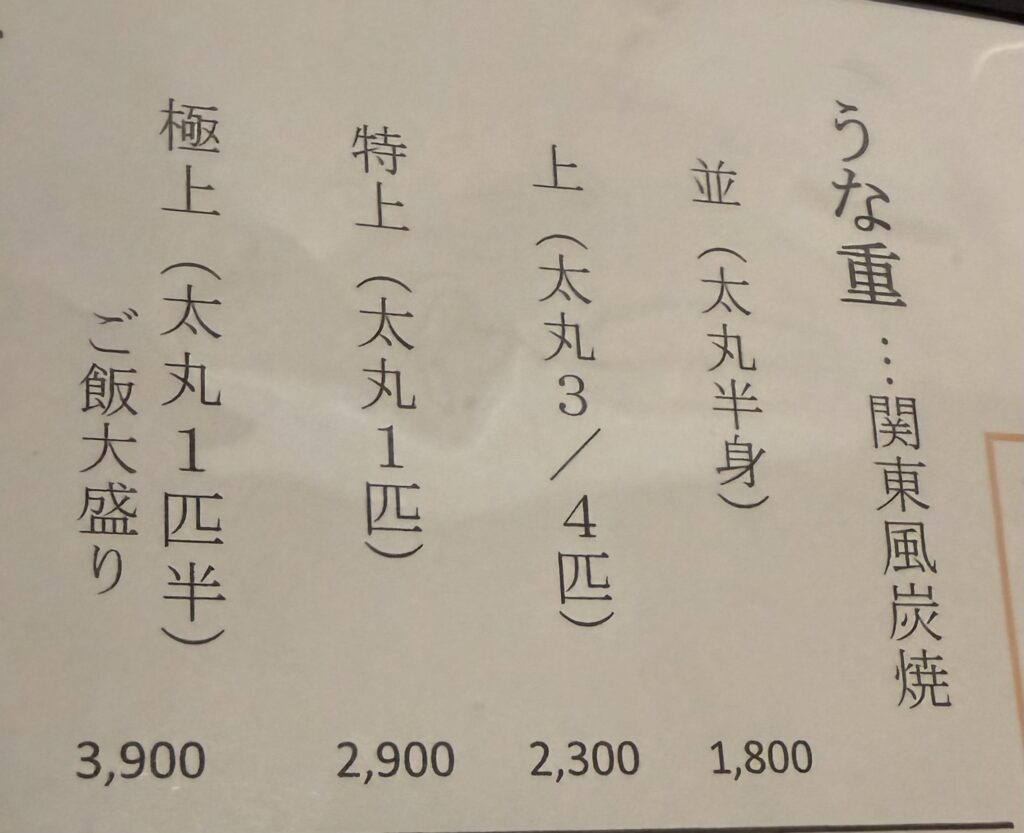 うな重…関東風炭焼
並（太丸半身） 1,800
上（太丸３／４匹） 2,300
特上（太丸１匹） 2,900
極上（太丸１匹半） 3,900
ご飯大盛り